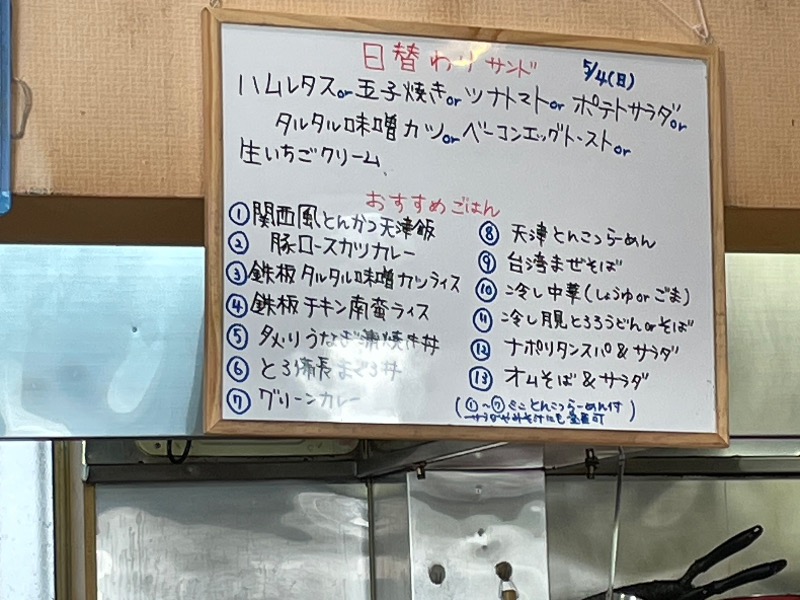 日替わりサンド 5/4(日)
ハムレタスor玉子焼きorツナトマトorポテトサラダor
タルタル味噌カツorベーコンエッグトーストor
生いちごクリーム
おすすめごはん
① 関西風とんかつ天津飯
② 豚ロースカツカレー
③ 鉄板タルタル味噌カツライス
④ 鉄板チキン南蛮ライス
⑤ 夕メリうなぎ蒲焼き丼
⑥ とろ備長まぐろ丼
⑦ グリーンカレー
⑧ 天津とんこつらーめん
⑨ 台湾まぜそば
⑩ 冷し中華(しょうゆorごま)
⑪ 冷し月見とろろうどんorそば
⑫ ナポリタンスパ&サラダ
⑬ オムそば&サラダ
(①〜⑦ミニとんこつらーめん付)
サラダやみそ汁にも変更可